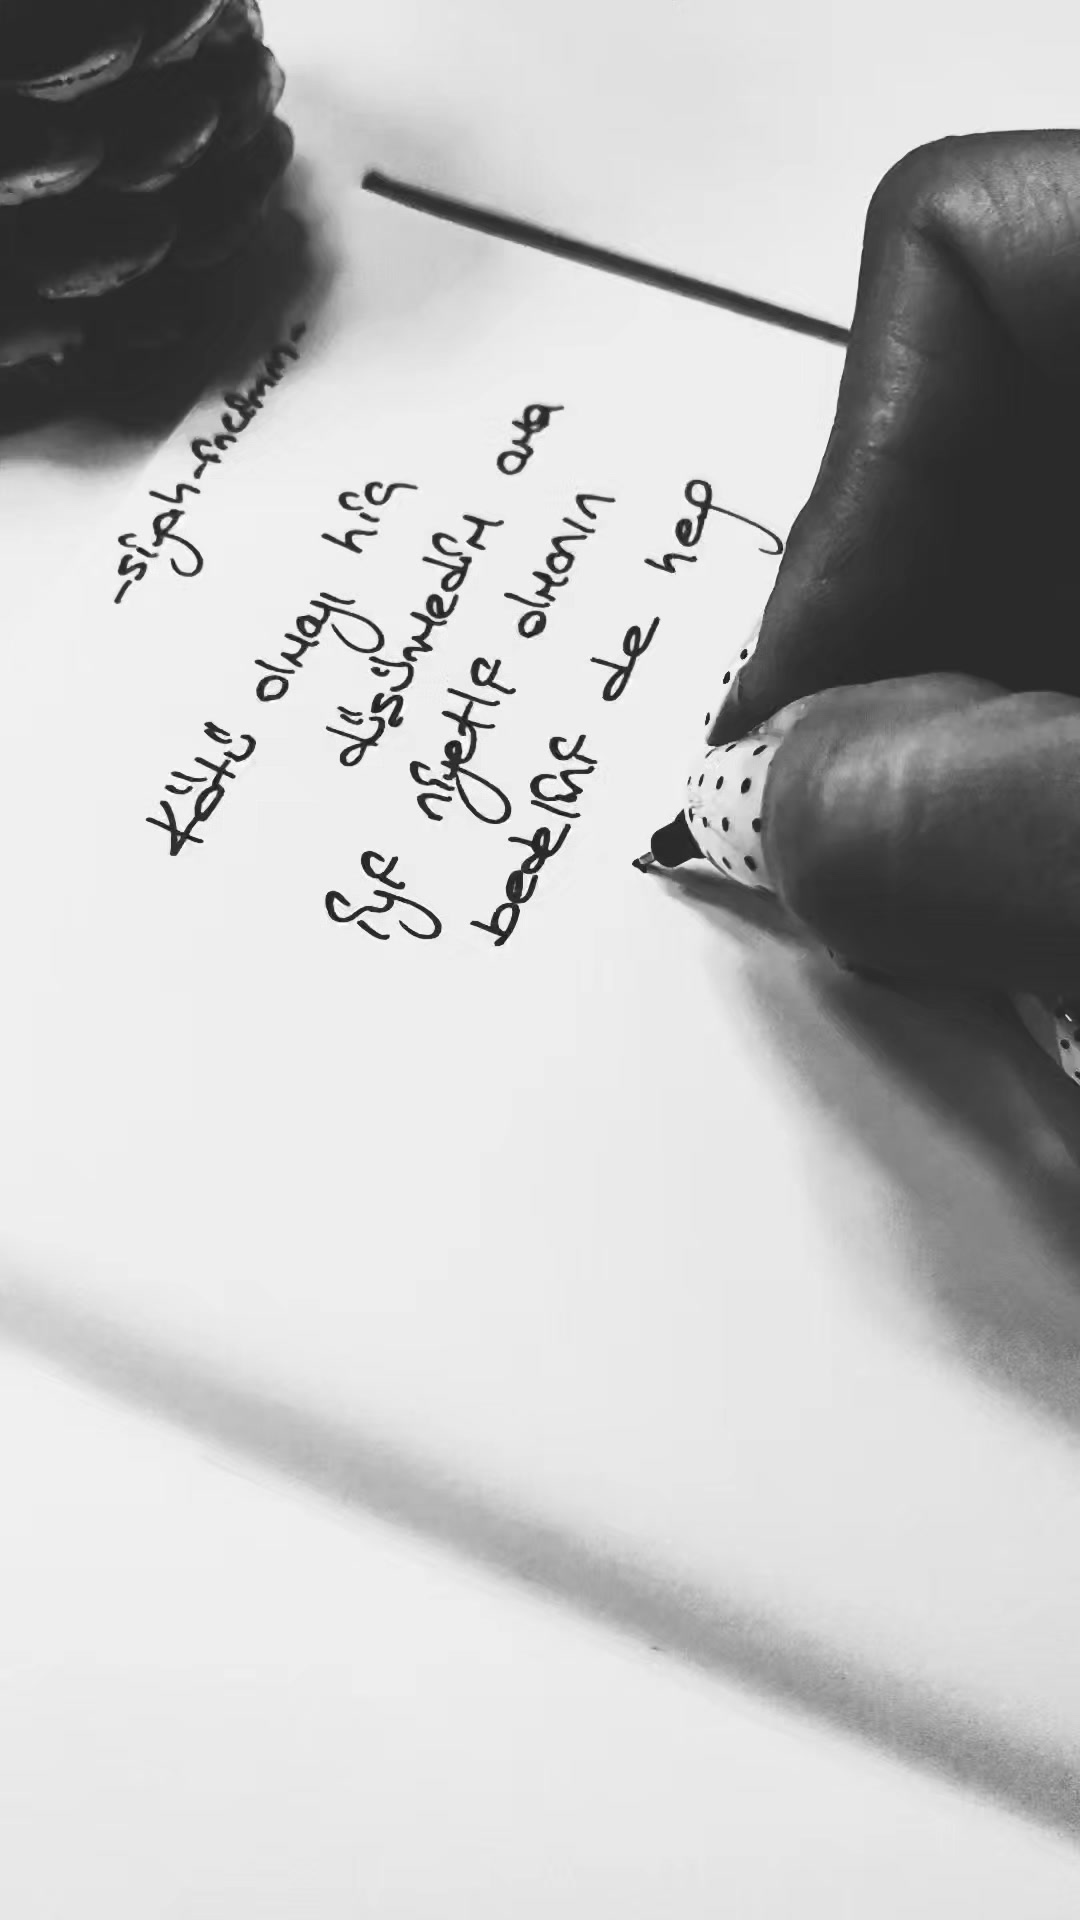 -siyah-inedmm-
Kötü olmayı hiç
düşünmedim ama
iyi niyetli olmanın
bedelini de hep